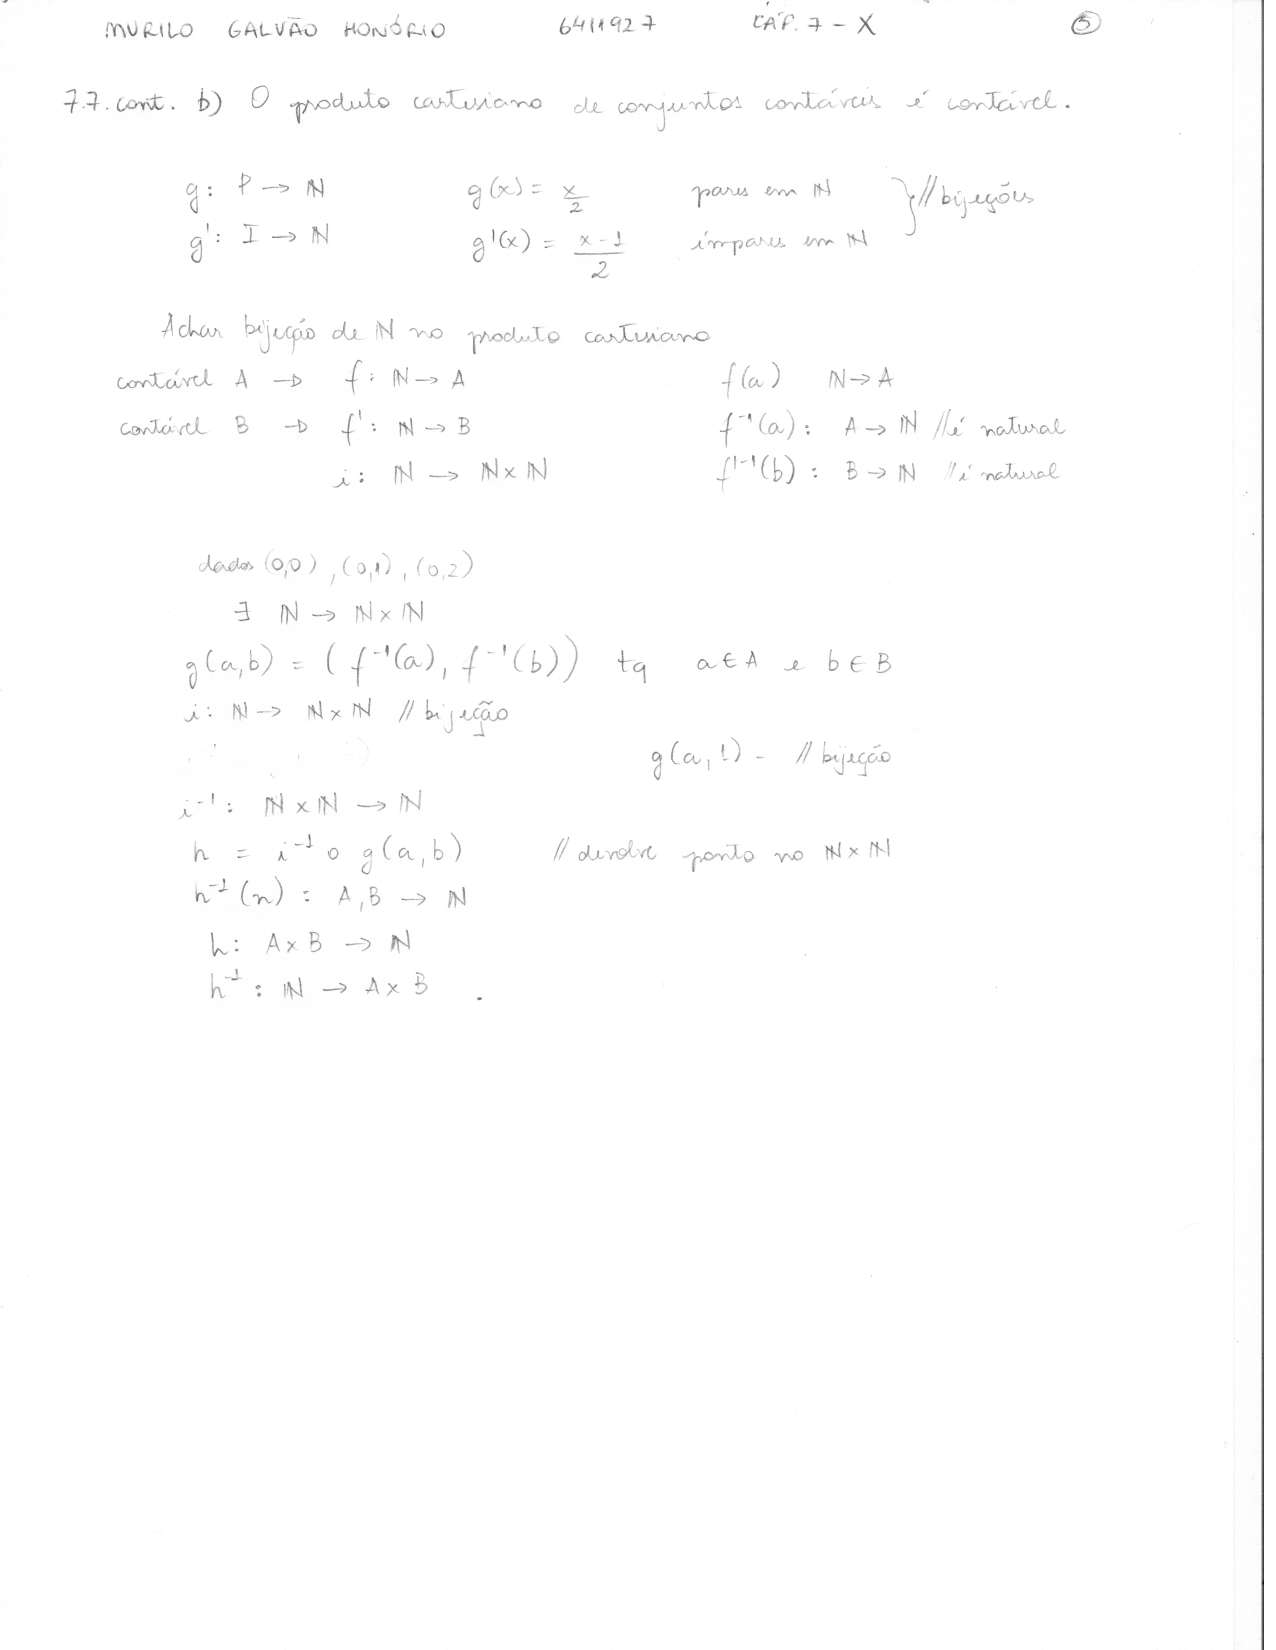 MURILO GALVÃO HONÓRIO 6411927 CAP. 7 - X 5
7.7. cont. b) O produto cartesiano de conjuntos contáveis é contável.
g: P → ℕ g(x) = x/2 pares em ℕ } // bijeções
g': I → ℕ g'(x) = (x-1)/2 ímpares em ℕ
Achar bijeção de ℕ no produto cartesiano
contável A → f: ℕ → A f(a) N → A
contável B → f': ℕ → B f⁻¹(a): A → ℕ // é natural
i: ℕ → ℕ x ℕ f'⁻¹(b): B → ℕ // é natural
dados (0,0), (0,1), (0,2)
∃ ℕ → ℕ x ℕ
g(a,b) = (f⁻¹(a), f⁻¹(b)) tq a ∈ A e b ∈ B
i: ℕ → ℕ x ℕ // bijeção
g(a, b) - // bijeção
i⁻¹: ℕ x ℕ → ℕ
h = i⁻¹ o g(a,b) // devolve ponto no ℕ x ℕ
h⁻¹(n): A, B → ℕ
h: A x B → ℕ
h⁻¹: ℕ → A x B .